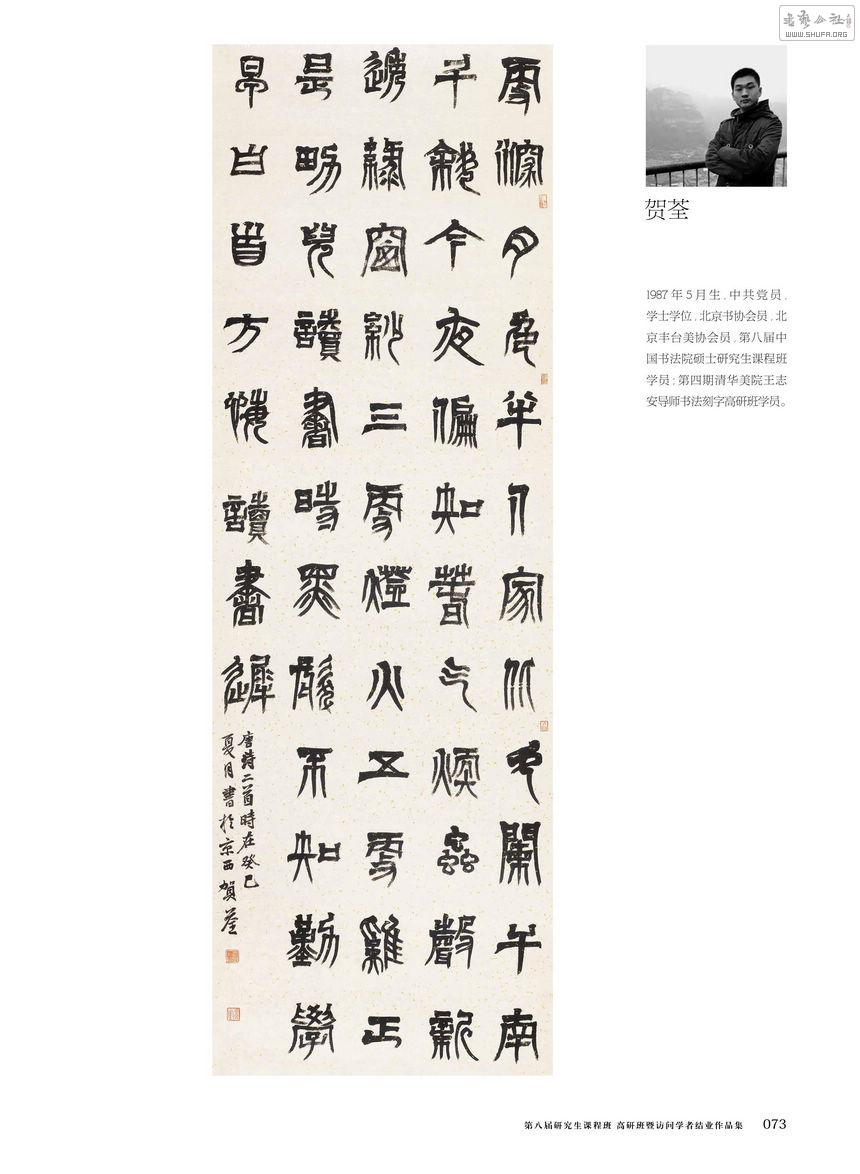 书艺公社
WWW.SHUFA.ORG
更深月色半人家北斗闌干南
斗斜今夜偏知春气暖蟲聲新
透綠窗紗三更燈火五更雞正
是男兒讀書時黑髮不知勤學
早白首方悔讀書遲
唐詩二首時在癸巳
夏月書於京西賀荃
贺荃
1987年5月生,中共党员,
学士学位,北京书协会员,北
京丰台美协会员,第八届中
国书法院硕士研究生课程班
学员;第四期清华美院王志
安导师书法刻字高研班学员。
第八届研究生课程班 高研班暨访问学者结业作品集 073